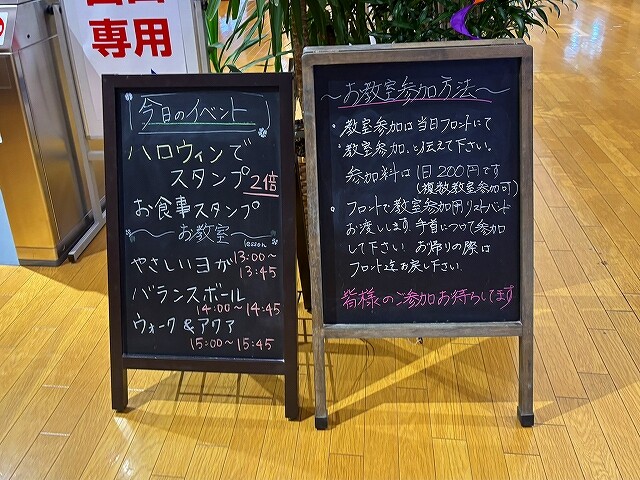 専用
今日のイベント
ハロウィンで
スタンプ2倍
お食事スタンプ
～お教室～
lesson
やさしいヨガ 13:00～
13:45
バランスボール
14:00～14:45
ウォーク&アクア
15:00～15:45
～お教室参加方法～
・教室参加は当日フロントにて
「教室参加」と伝えて下さい。
参加料は1日200円です
(複数教室参加可)
・フロントで教室参加用リストバンド
お渡しします。手首につけて参加
して下さい お帰りの際は
フロント迄お戻し下さい。
皆様のご参加お待ちしてます